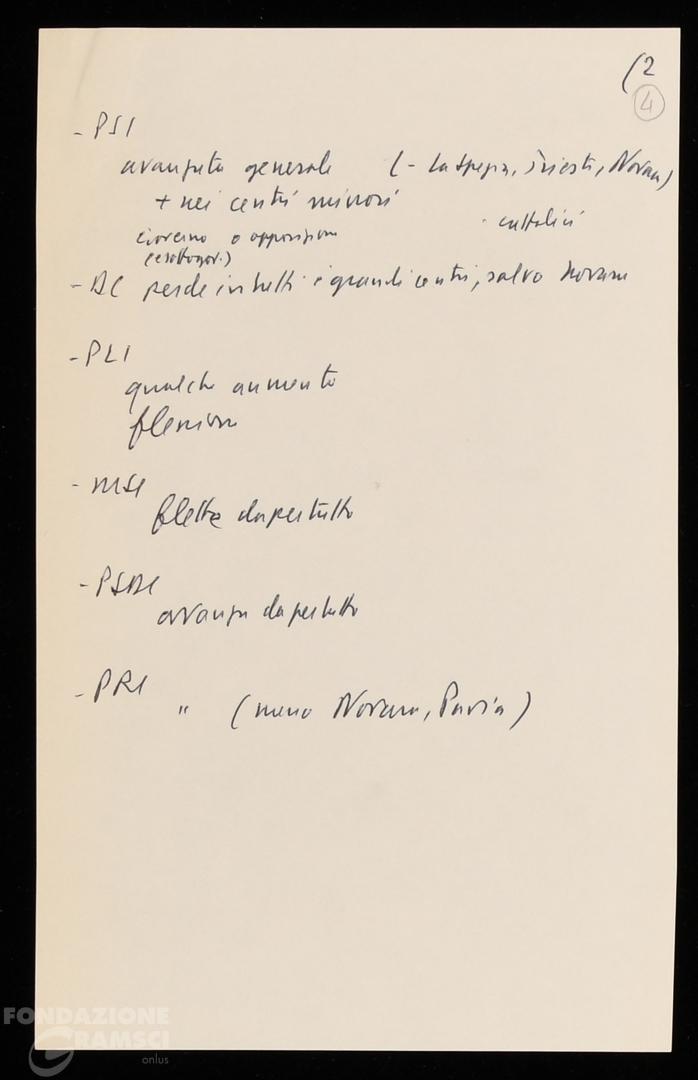 (2
4
- PSI
avanzata generale (- La Spezia, Trieste, Novara)
+ nei centri minori
· cattolici
governo o opposizione
(e sottogov.)
- DC perde in tutti i grandi centri, salvo Novara
- PLI
qualche aumento
flessione
- MSI
flette dapertutto
- PSDI
avanza dapertutto
- PRI
" (meno Novara, Pavia)
FONDAZIONE
GRAMSCI
onlus